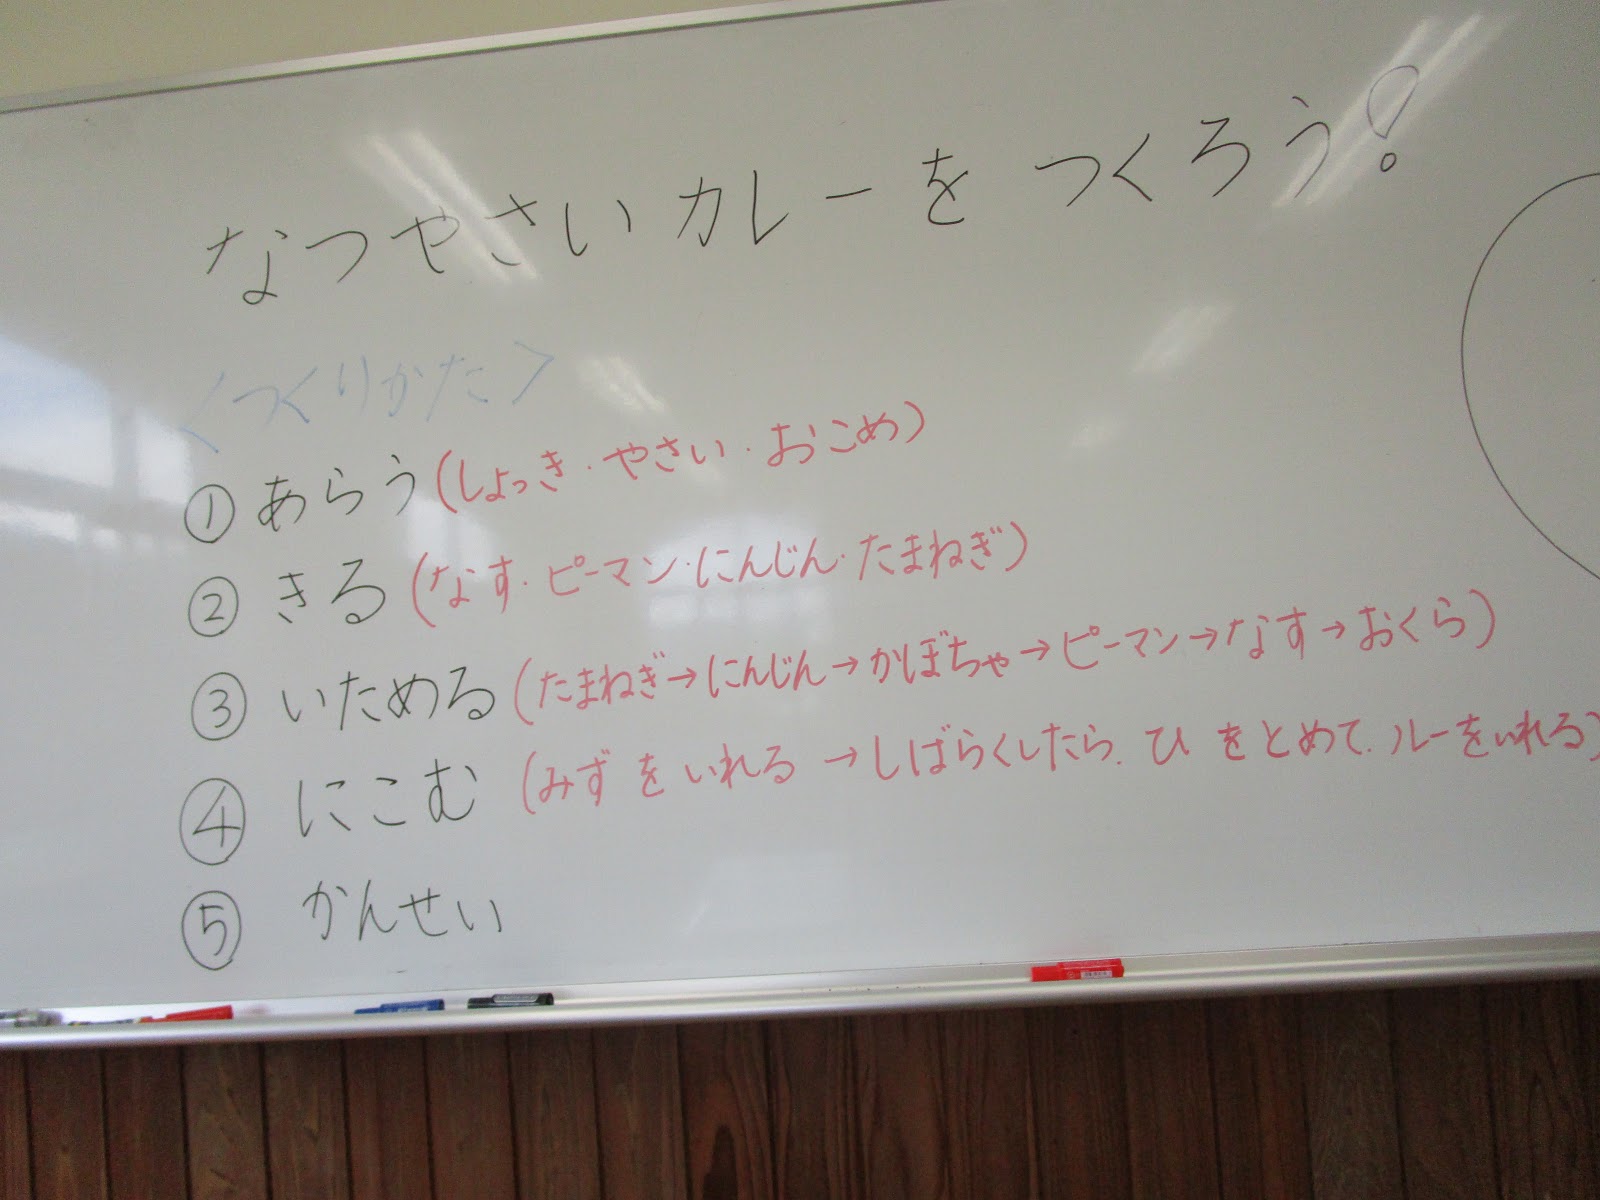 なつやさいカレーを つくろう!
<つくりかた>
① あらう(しょっき・やさい・おこめ)
② きる(なす・ピーマン・にんじん・たまねぎ)
③ いためる(たまねぎ→にんじん→かぼちゃ→ピーマン→なす→おくら)
④ にこむ (みずをいれる →しばらくしたら、ひをとめて、ルーをいれる)
⑤ かんせい